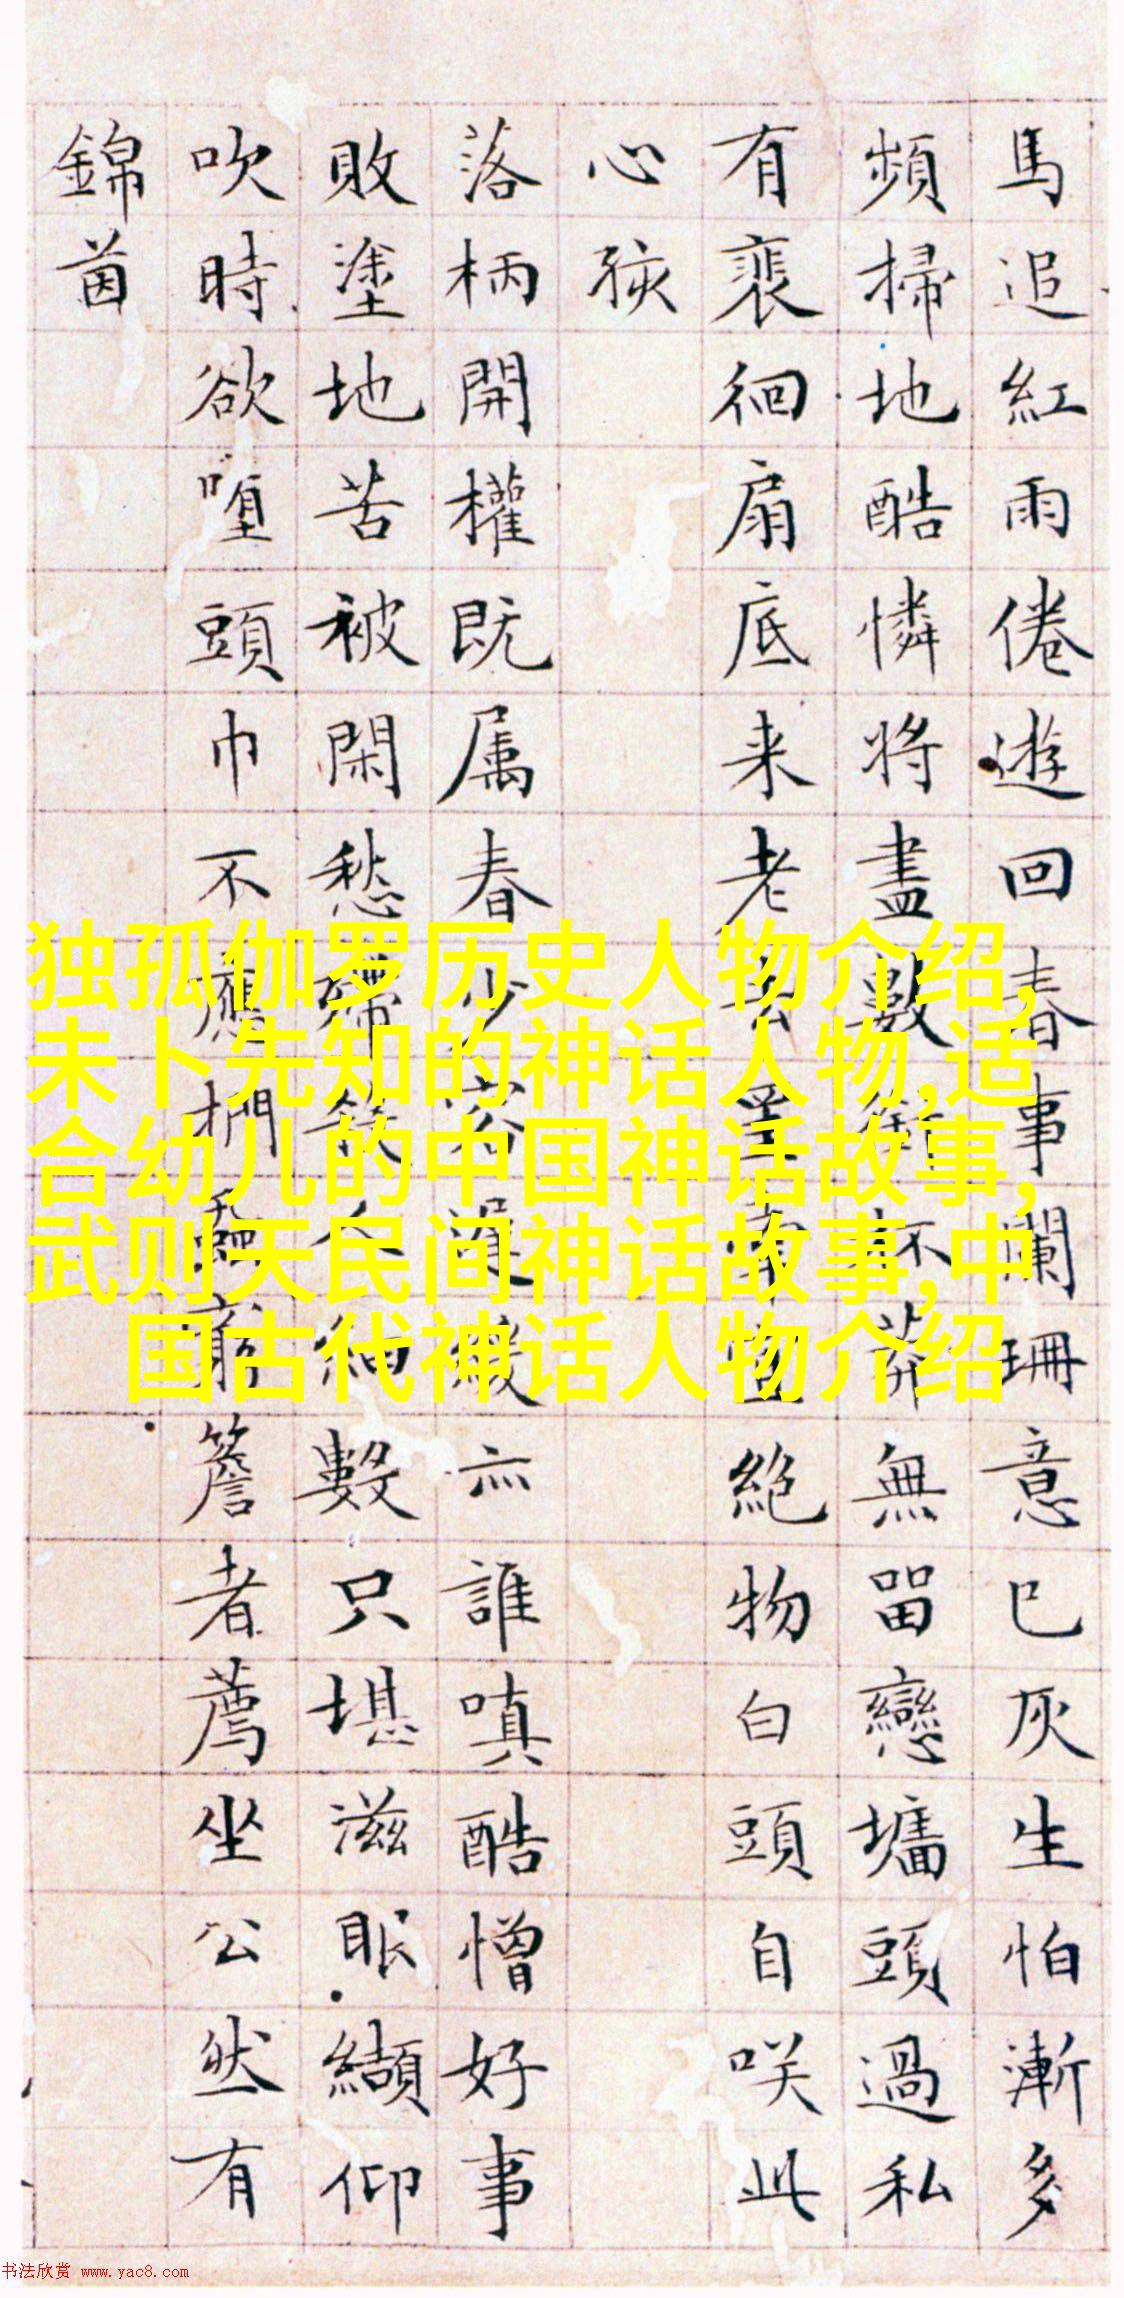 馬追紅雨倦遊回春事闌珊意已灰生怕漸多
頻掃地酷憐將盡數銜杯莽無留戀墻頭過私
有裴徊扇底来老去罣牽惟絶物白頭自咲此
心孩
落柄開權既属春少容遅緩亦誰嗔酷憎好事
敗塗地苦被閑愁殢殺人細數只堪滋眼纈仰
吹時欲墮頭巾不應捫蝨窮簷者薦坐公然有
錦茵
独孤伽罗历史人物介绍,
未卜先知的神话人物,适
合幼儿的中国神话故事,
武则天民间神话故事,中
国古代神话人物介绍
书法欣赏 www.yac8.com